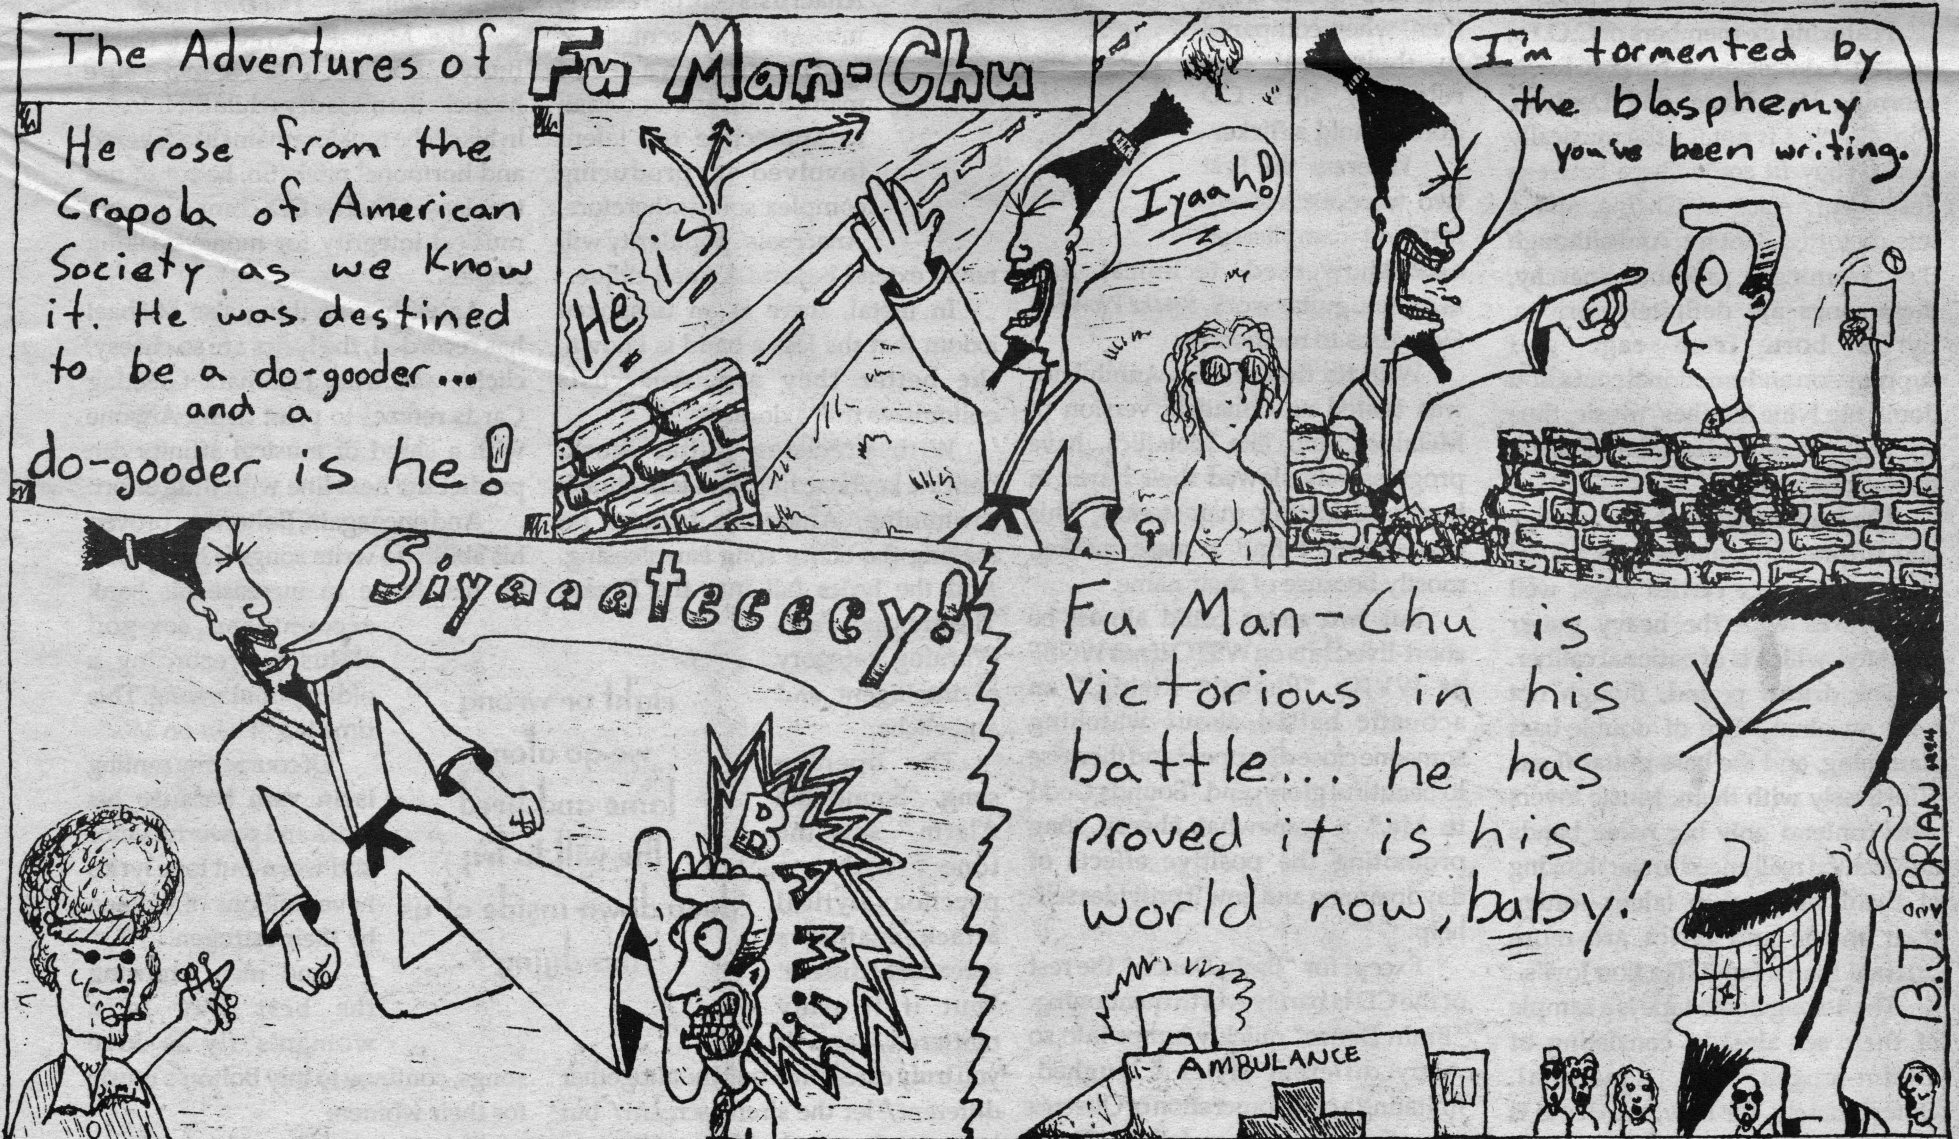 The Adventures of Fu Man-Chu
He rose from the
Crapola of American
Society as we know
it. He was destined
to be a do-gooder...
and a
do-gooder is he!
He
is
Iyaah!
I'm tormented by
the blasphemy
you've been writing.
Siyaaateeeey!
BAM!
Fu Man-Chu is
victorious in his
battle... he has
proved it is his
world now, baby!
AMBULANCE
B.J. AND BRIAN